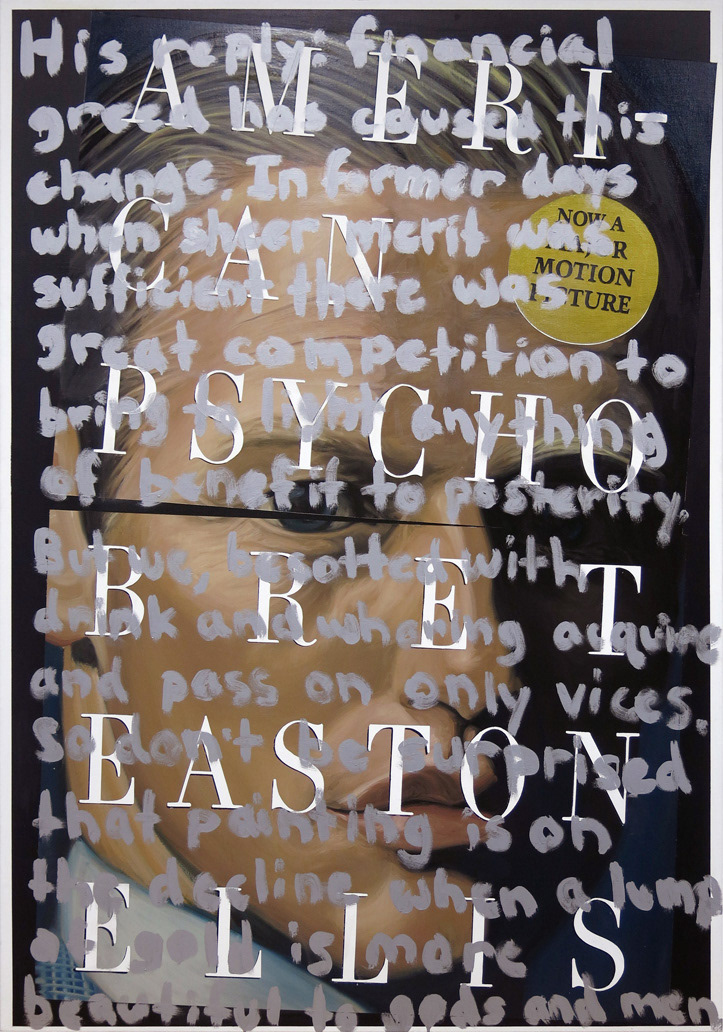 His reply: financial
greed has caused this
change. In former days
when sheer merit was
sufficient there was
great competition to
bring to light anything
of benefit to posterity.
But we, besotted with
drink and whoring acquire
and pass on only vices.
So don't be surprised
that painting is on
the decline when a lump
of gold is more
beautiful to gods and men
AMERI-
CAN
PSYCHO
BRET
EASTON
ELLIS
NOW A
MAJOR
MOTION
PICTURE